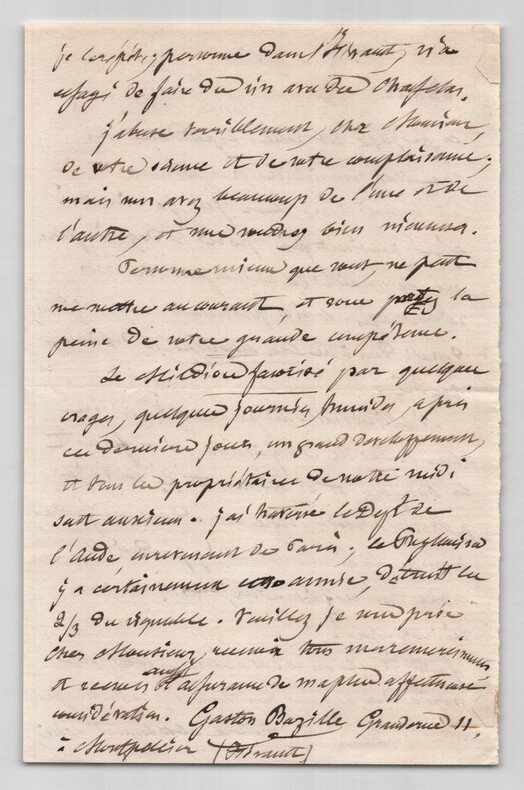 je le répète, personne dans l'Hérault, n'a
essayé de faire du vin avec du Chasselas.
j'abuse terriblement, cher Monsieur,
de votre science et de votre complaisance;
mais vous avez beaucoup de l'une et de
l'autre, et me voudrez bien m'excuser.
Personne mieux que vous, ne peut
me mettre au courant, et vous la
peine de votre grande compétence.
Le Mildiou favorisé par quelques
orages, quelques journées humides, a pris
ces derniers jours, un grand développement,
et tous les propriétaires de notre midi
sont anxieux. j'ai traversé le Dépt de
l'Aude en revenant de Paris; le
y a certainement cette année, détruit les
2/3 du vignoble. Veuillez je vous prie
cher Monsieur, recevoir tous mes remerciements
et recevez aussi l'assurance de ma plus affectueuse
considération. Gaston Bazille Grand rue 11.
à Montpellier (Hérault)